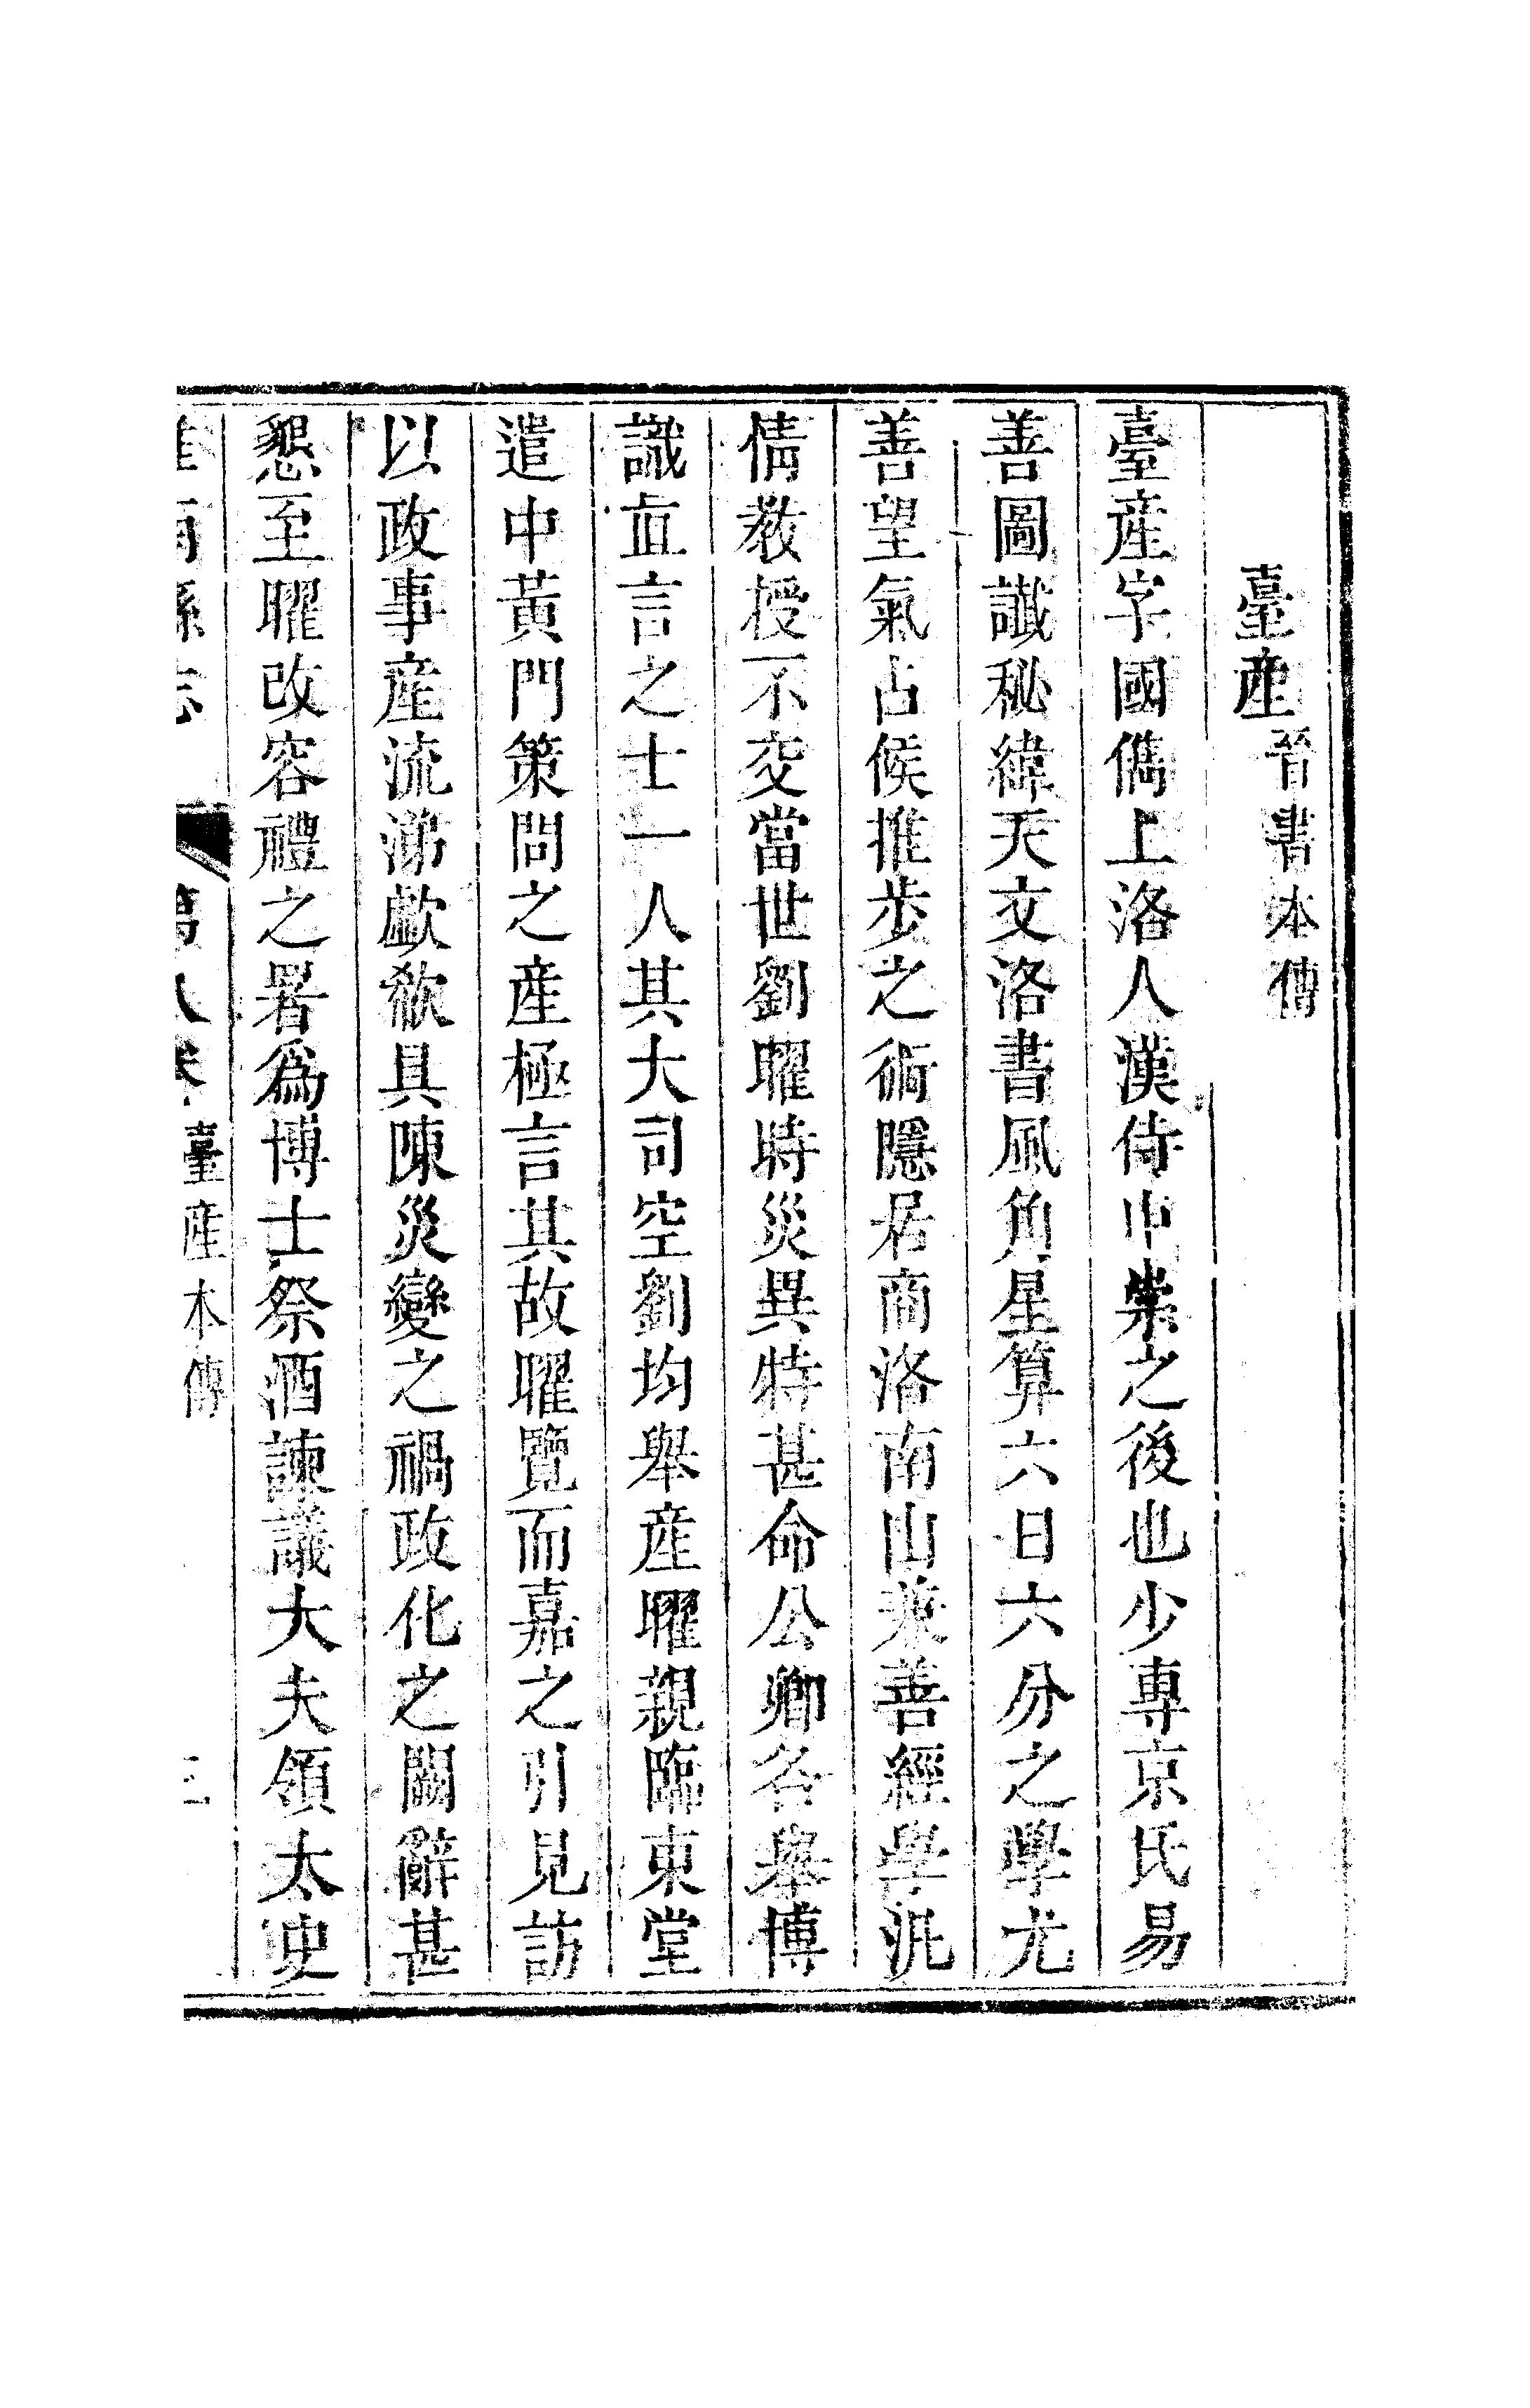 臺産晉書本傳
臺産字國儁上洛人漢侍中崇之後也少專京氏易
善圖讖秘緯天文洛書風角星算六日六分之學尤
善望氣占候推步之術隱居商洛南山兼善經學汎
情敎授不交當世劉曜時災異特甚命公卿各舉博
識直言之士一人其大司空劉均舉産曜親臨東堂
遣中黃門策問之産極言其故曜覽而嘉之引見訪
以政事産流涕歔欷具陳災變之禍政化之闕辭甚
懇至曜改容禮之署爲博士祭酒諫議大夫領太史
縣志 第八卷 臺産本傳